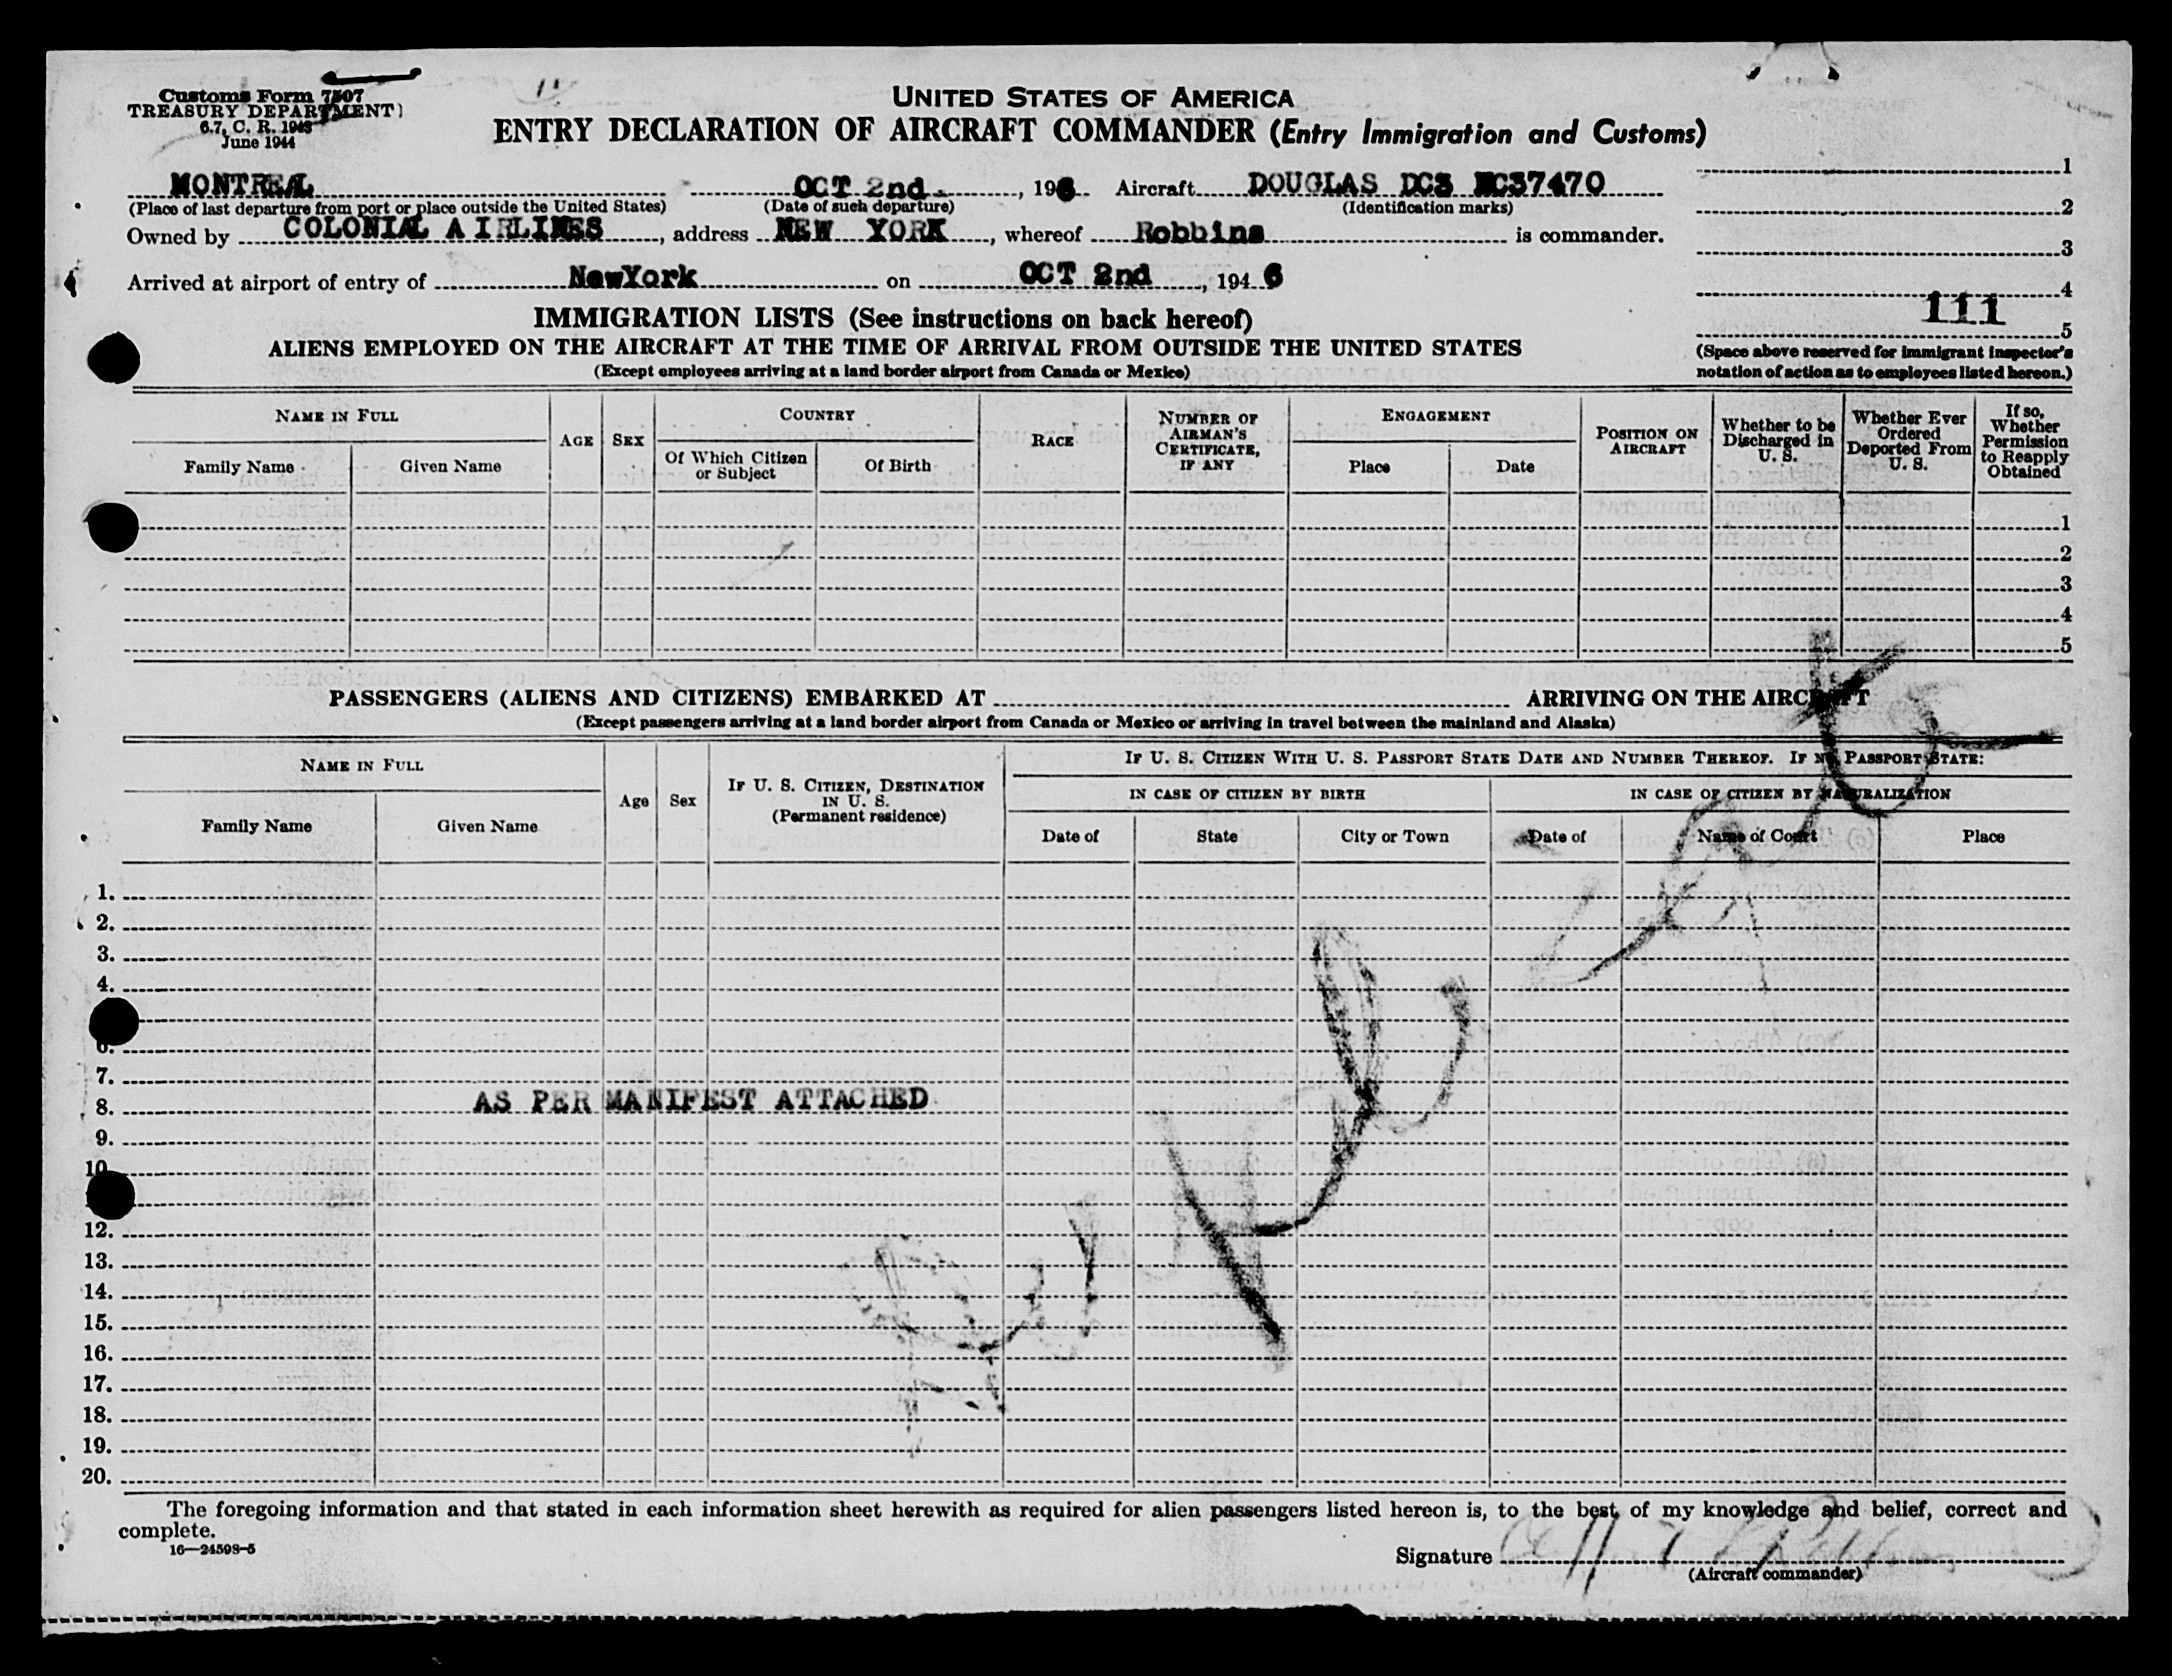 Customs Form 7507
TREASURY DEPARTMENT
6.7, C. R. 1943
June 1944
UNITED STATES OF AMERICA
ENTRY DECLARATION OF AIRCRAFT COMMANDER (Entry Immigration and Customs)
MONTREAL OCT 2nd. , 1946 Aircraft DOUGLAS DC3 NC37470
(Place of last departure from port or place outside the United States) (Date of such departure) (Identification marks)
Owned by COLONIAL AIRLINES, address NEW YORK, whereof Robbins is commander.
Arrived at airport of entry of NewYork on OCT 2nd, 1946
1
2
3
4
111
5
(Space above reserved for immigrant inspector's
notation of action as to employees listed hereon.)
IMMIGRATION LISTS (See instructions on back hereof)
ALIENS EMPLOYED ON THE AIRCRAFT AT THE TIME OF ARRIVAL FROM OUTSIDE THE UNITED STATES
(Except employees arriving at a land border airport from Canada or Mexico)
NAME IN FULL
Family Name Given Name
AGE
SEX
COUNTRY
Of Which Citizen or Subject
Of Birth
RACE
NUMBER OF AIRMAN'S CERTIFICATE, IF ANY
ENGAGEMENT
Place Date
POSITION ON AIRCRAFT
Whether to be Discharged in U. S.
Whether Ever Ordered Deported From U. S.
If so, Whether Permission to Reapply Obtained
1
2
3
4
5
PASSENGERS (ALIENS AND CITIZENS) EMBARKED AT ARRIVING ON THE AIRCRAFT
(Except passengers arriving at a land border airport from Canada or Mexico or arriving in travel between the mainland and Alaska)
NAME IN FULL
Family Name Given Name
Age
Sex
IF U. S. CITIZEN, DESTINATION IN U. S.
(Permanent residence)
IF U. S. CITIZEN WITH U. S. PASSPORT STATE DATE AND NUMBER THEREOF. IF NO PASSPORT STATE:
IN CASE OF CITIZEN BY BIRTH
Date of State City or Town
IN CASE OF CITIZEN BY NATURALIZATION
Date of Name of Court Place
1.
2.
3.
4.
6.
7.
8. AS PER MANIFEST ATTACHED
9.
10
12.
13.
14.
15.
16.
17.
18.
19.
20.
The foregoing information and that stated in each information sheet herewith as required for alien passengers listed hereon is, to the best of my knowledge and belief, correct and
complete.
16—24598-5
Signature
(Aircraft commander)